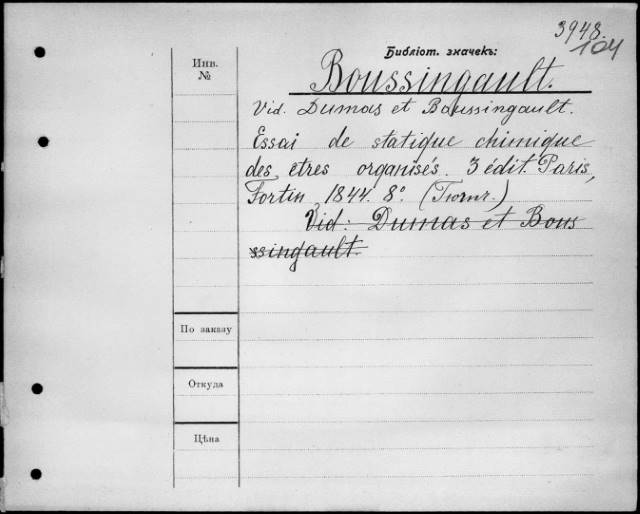 3948.
104
Инв.
№
Библіот. значекъ:
Boussingault.
Vid. Dumas et Boussingault.
Essai de statique chimique
des etres organisés. 3 édit. Paris,
Fortin, 1844. 8°.
Vid: Dumas et Bous
ssingault.
По заказу
Откуда
Цѣна